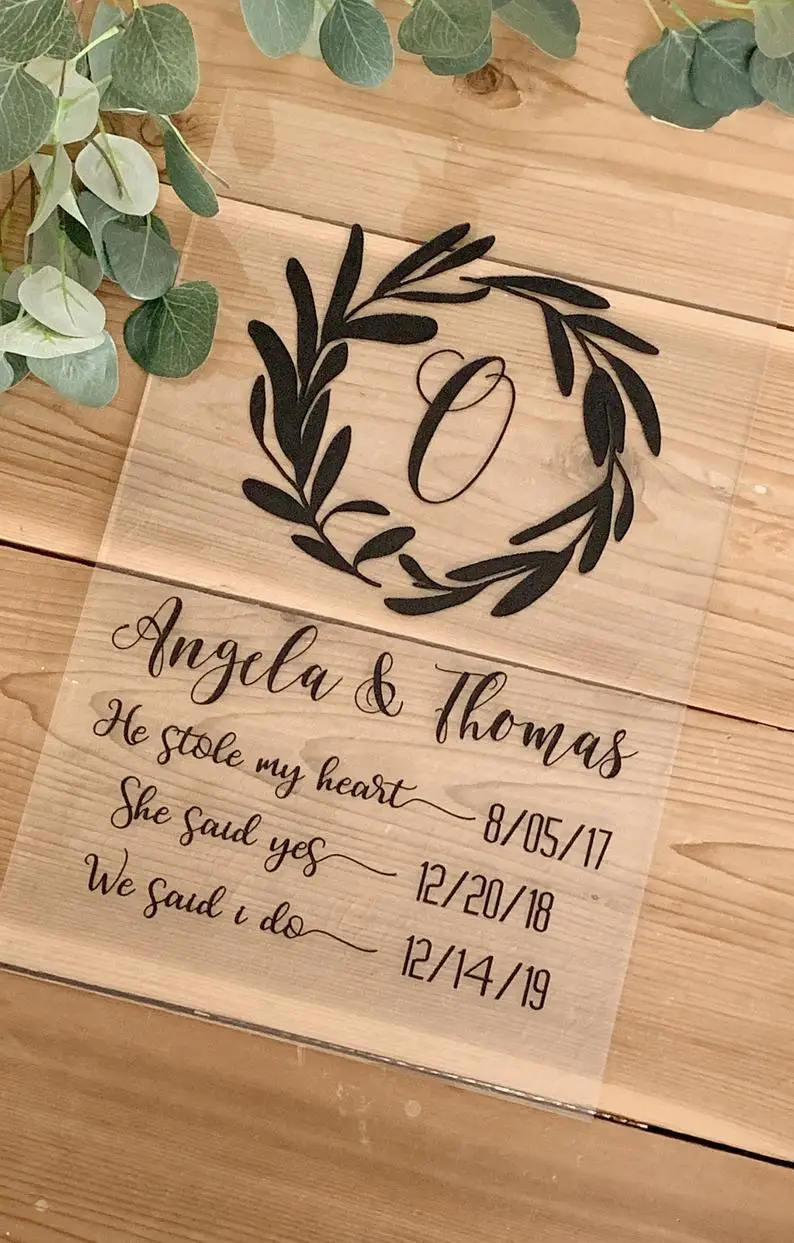 O
Angela & Thomas
He stole my heart 8/05/17
She said yes 12/20/18
We said i do 12/14/19